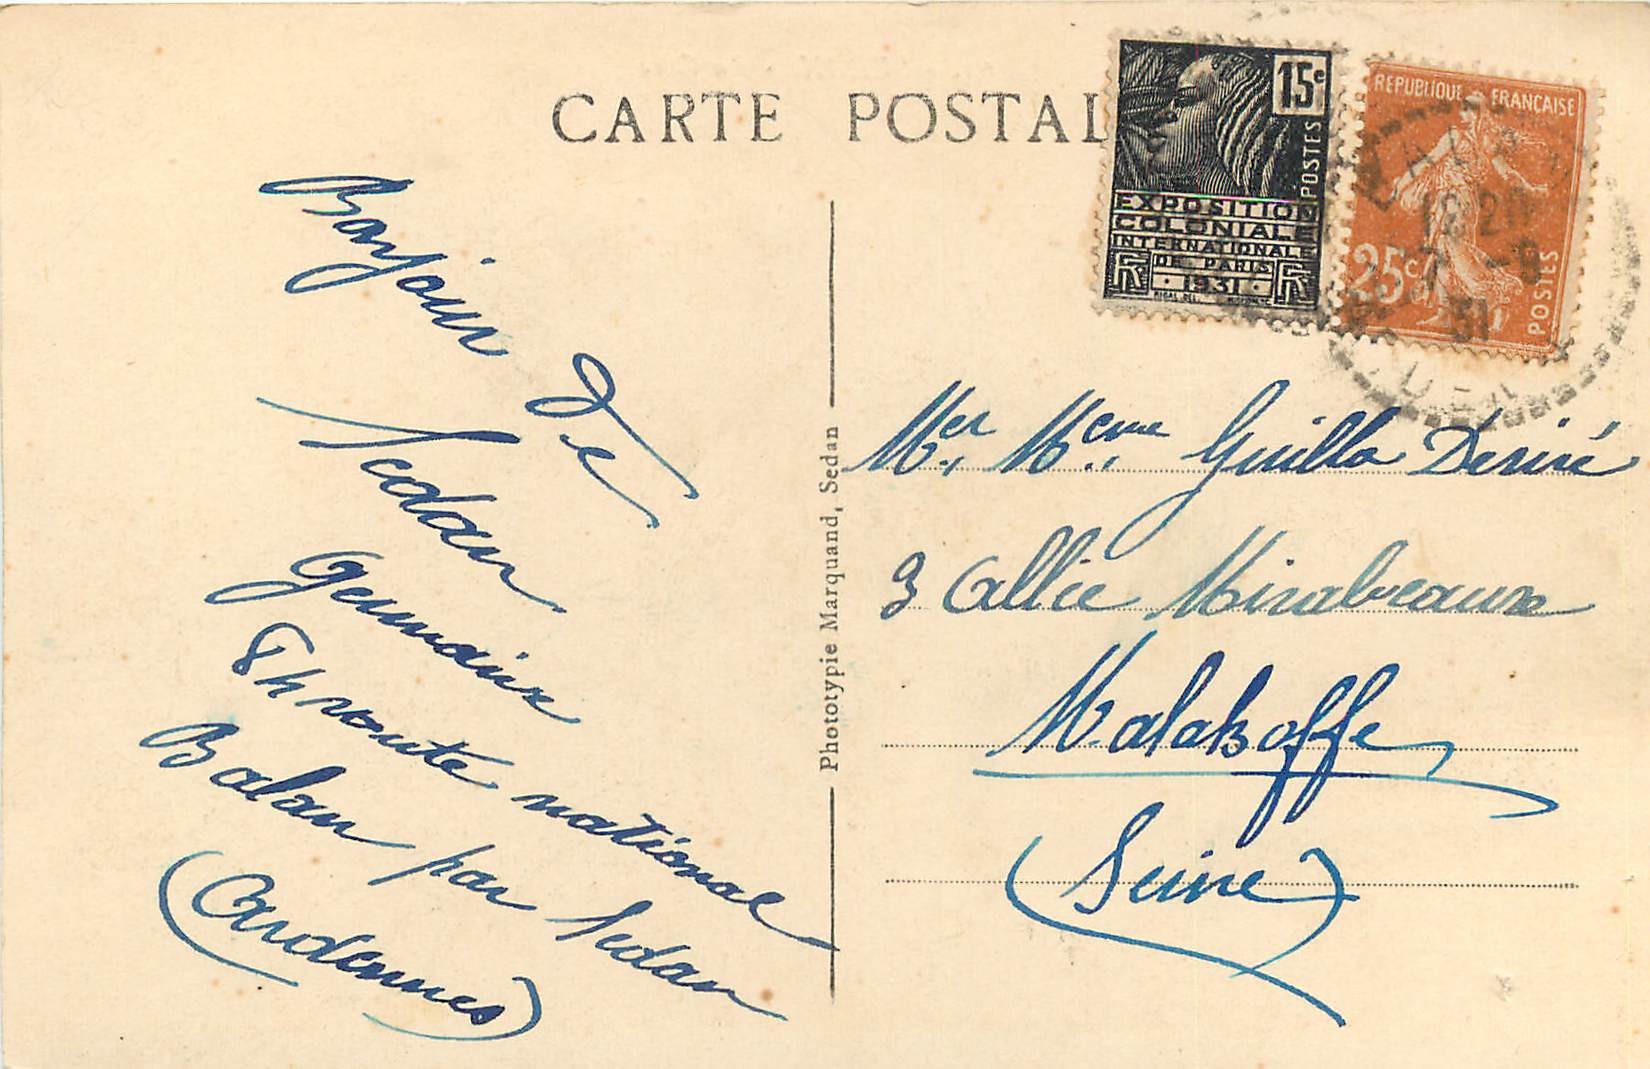 CARTE POSTAL
15c
POSTES
EXPOSITION
COLONIALE
INTERNATIONALE
DE PARIS
1931
REPUBLIQUE FRANCAISE
25c
POSTES
BALAN
18 20
7 -9
31
Bonjour de
Sedan
Germaine
8h route national
Balan par Sedan
(Ardennes)
Phototypie Marquand, Sedan
Mer Meme Guilla Desiré
3 Allée Mirabeaux
Malakoffe
(Seine)